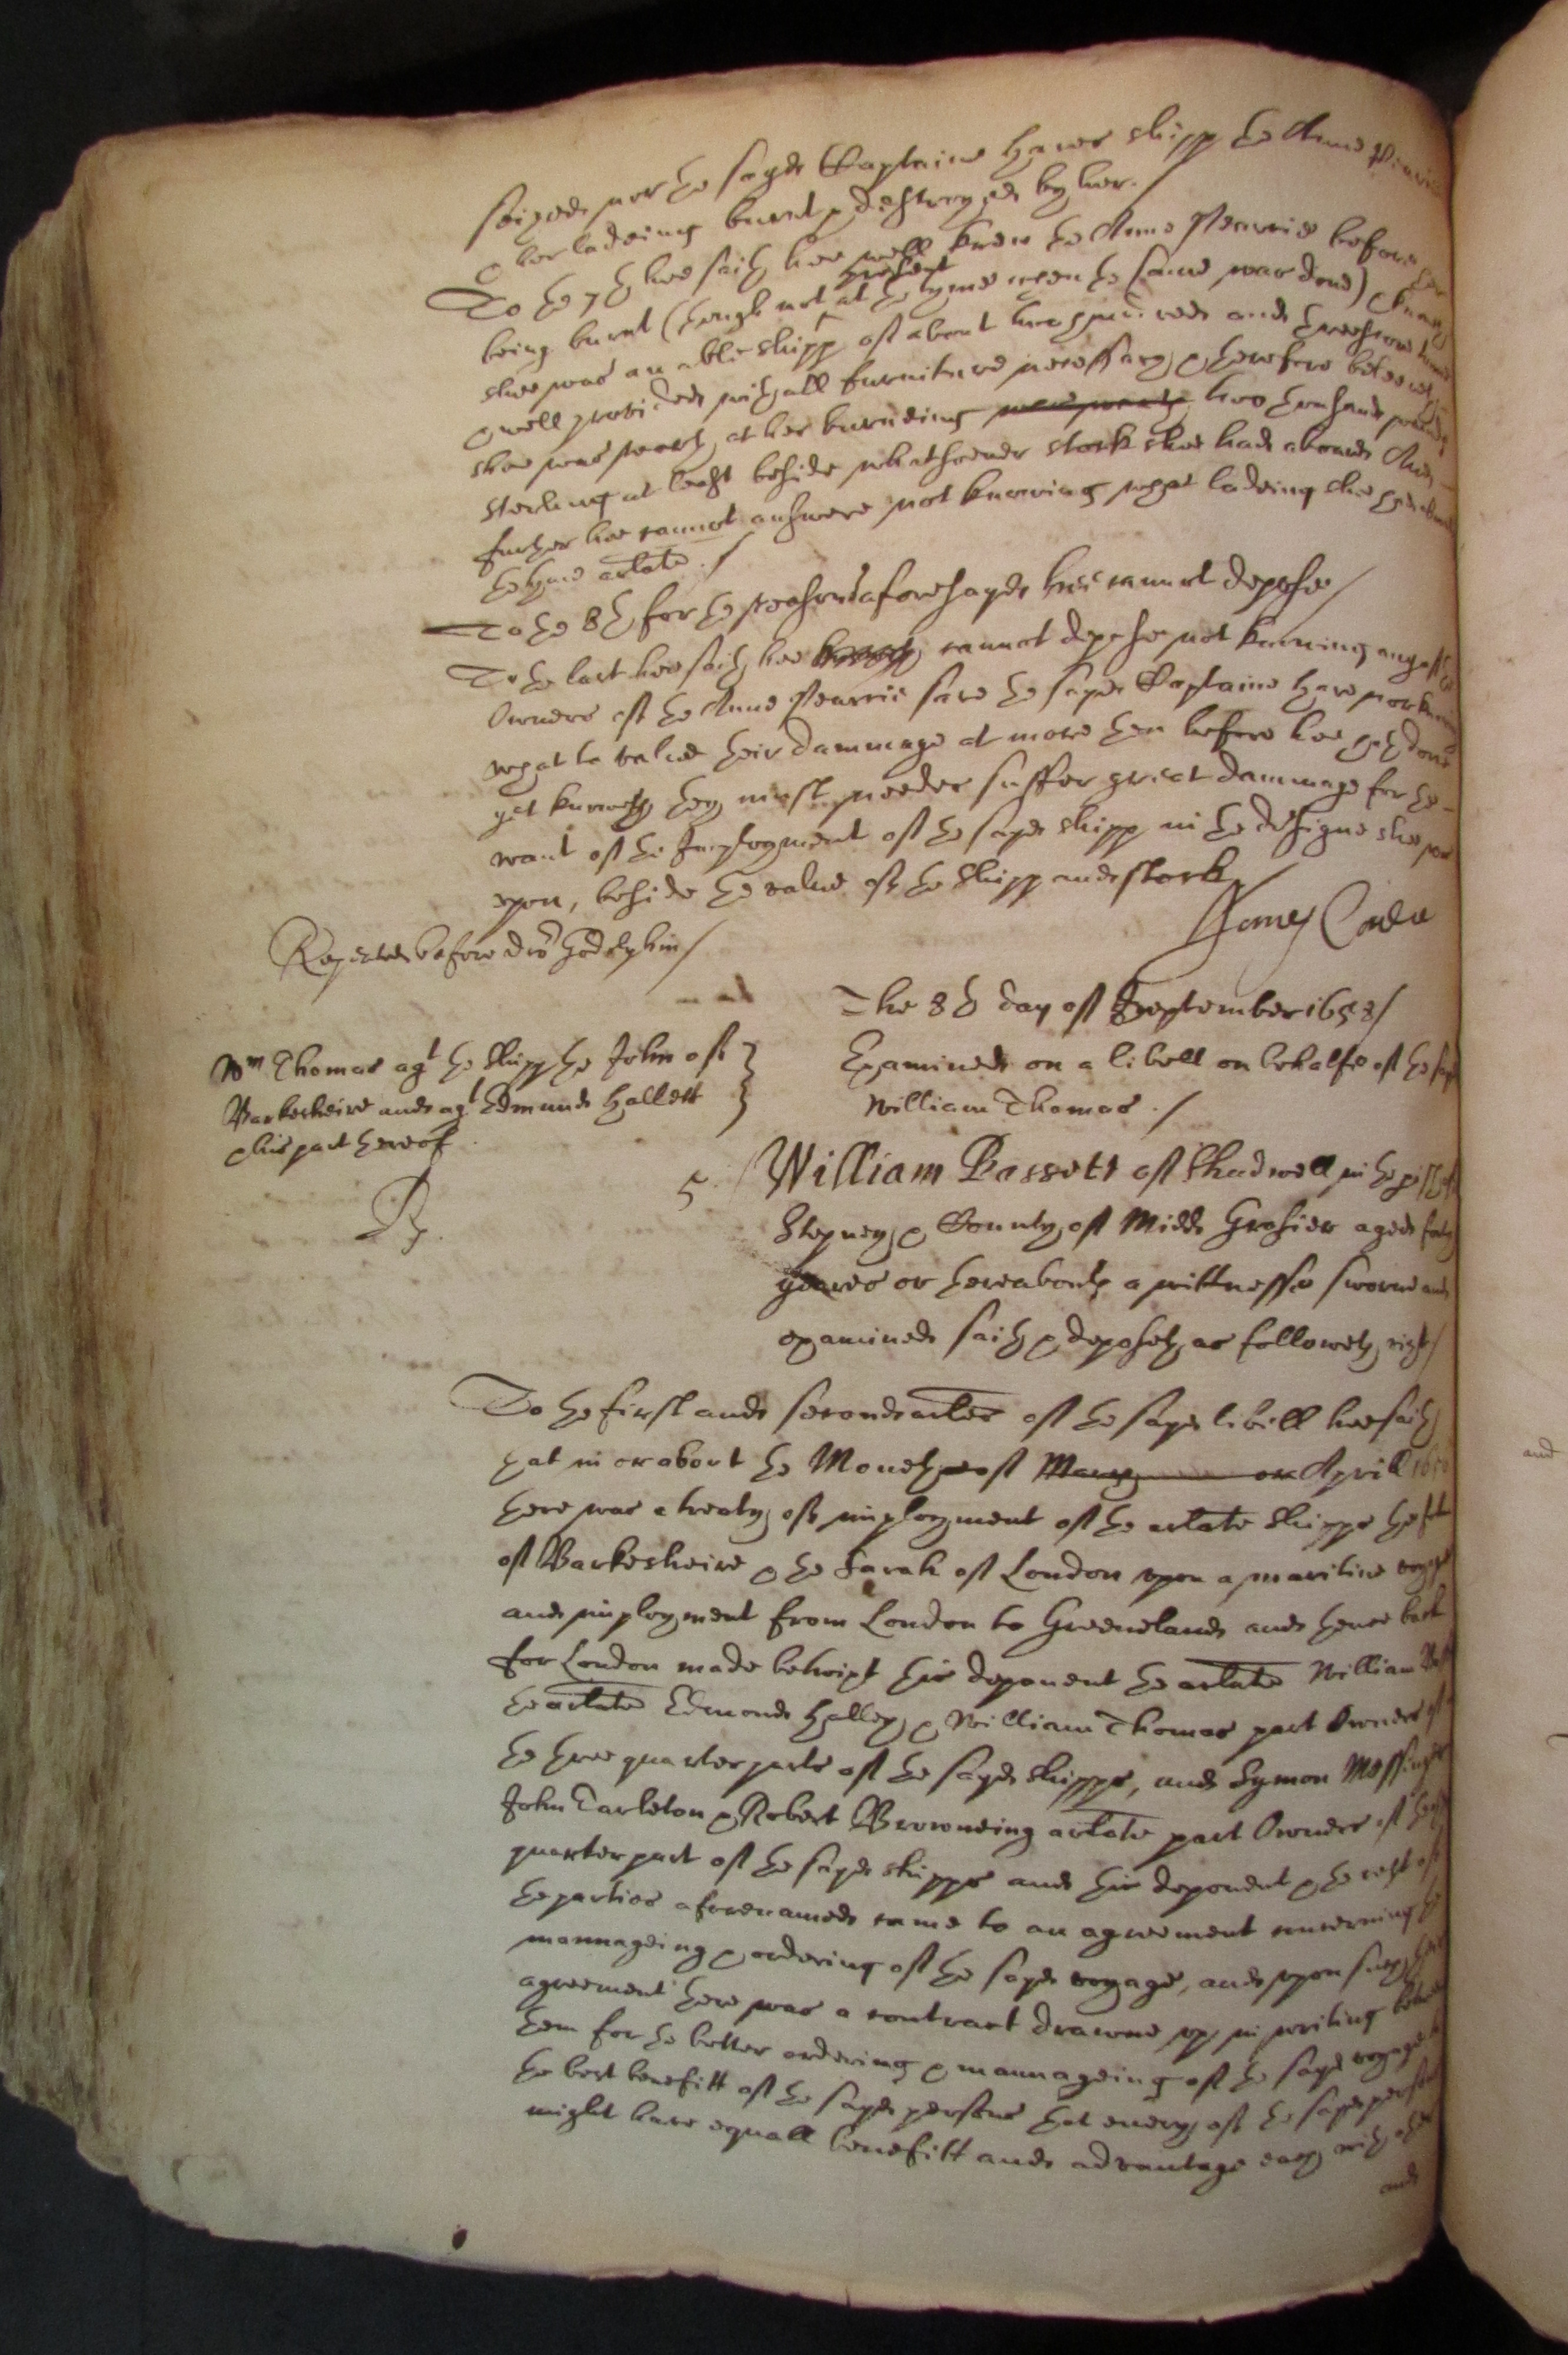 seized nor the sayd Captaine Hares shipp the Anne Pearcie
& her ladeing burnt & destroyed by her./
To the 7th hee saith hee well knew the Anne Pearcie before her
being burnt (though not at the tyme when the same was done)
present
shee was an able shipp of about two hundred and threescore tonnes
& well provided with all furniture necessary, & therefore beleeveth
shee was worth at her burneing two thousand pounds
sterling at least beside whatsoever stock shee had aboard And
further hee cannot answere not knowing what ladeing she had aboard
the tyme arlate./
To the 8th for the reasons aforesayd hee cannot depose/
To the last hee saith hee cannot depose not knowing any of the
Owners of the Anne Pearcie save the sayd Captaine Hare nor knowing
what to value their dammage at more then before hee hath done
yet knoweth they must needes suffer great dammage for the
want of the Imployment of the sayd shipp in the designe she was
upon, beside the value of the shipp and stock/
James Cade
Repeated before dr Godolphin/
The 8th day of September 1658/
Wm Thomas agt the shipp the John of
Barkesheire and agt Edmund Hallett
& his part thereof
Examined on a libell on behalfe of the sayd
William Thomas./
5
William Bassett of Shadwell in the pish of
Stepney & County of Midd Grosier aged forty
yeares or thereabouts a wittnesse sworne and
examined saith & deposeth as followeth, vizt/
To the first and second arles of the sayd libell hee saith
that in or about the Moneth of Aprill
there was a treaty of imployment of the arlate shipps the John
of Barkesheire & the Sarah of London upon a maritine voyage
and imployment from London to Greeneland and thence back
for London made betwixt this deponent the arlate William
the arlate Edmond Halley & William Thomas part Owners of
the three quarter parts of the sayd shipps, and Symon Messinger
John Tarleton & Robert Browneing arlate part Owners of the
quarter part of the sayd shipps and this deponent & the rest of
the parties aforenamed came to an agreement concerning the
mannageing & ordering of the sayd voyage, and upon such their
agreement there was a contract drawne up in writing betweene
them for the better ordering & mannageing of the sayd voyage to
the best benefitt of the sayd persons that every of the sayd persons
might have equall benefitt and advantage each with other
and